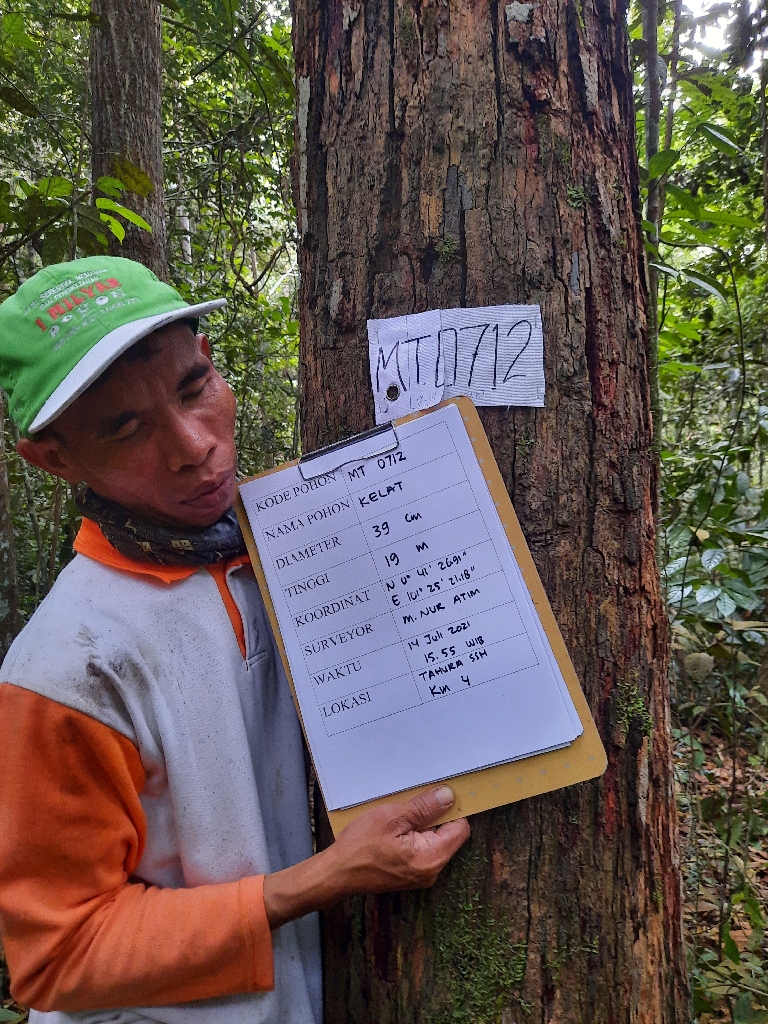 1 MILYAR
POHON
MT 0712
KODE POHON MT 0712
NAMA POHON KELAT
DIAMETER 39 cm
TINGGI 19 M
KOORDINAT N 0° 41' 26.91"
E 101° 25' 21.18"
SURVEYOR M. NUR ATIM
WAKTU 14 Juli 2021
15.55 WIB
LOKASI TAHURA SSH
KM 4